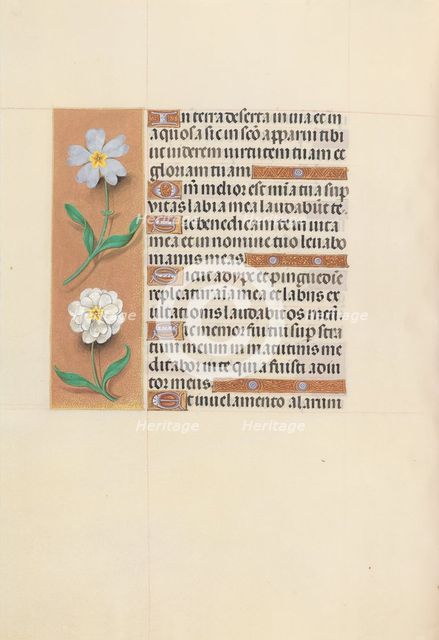 In terra deserta inuia et in
aquosa sic in scō apparui tibi
ut uiderem uirtutem tuam et
gloriam tuam
Qm̄ melior est mīa tua sup
uitas labia mea laudabūt te.
Sic benedicam te in uita
mea et in nomine tuo leuabo
manus meas
Sicut adype et pinguedie
repleatur aīa mea et labiis ex
ultationis laudabit os meū.
Sic memor fui tui sup stra
tum meum in matutinis me
ditabor in te quia fuisti adiu
tor meus
Et in uelamento alarum
Heritage
Heritage
Heritage
Heritage